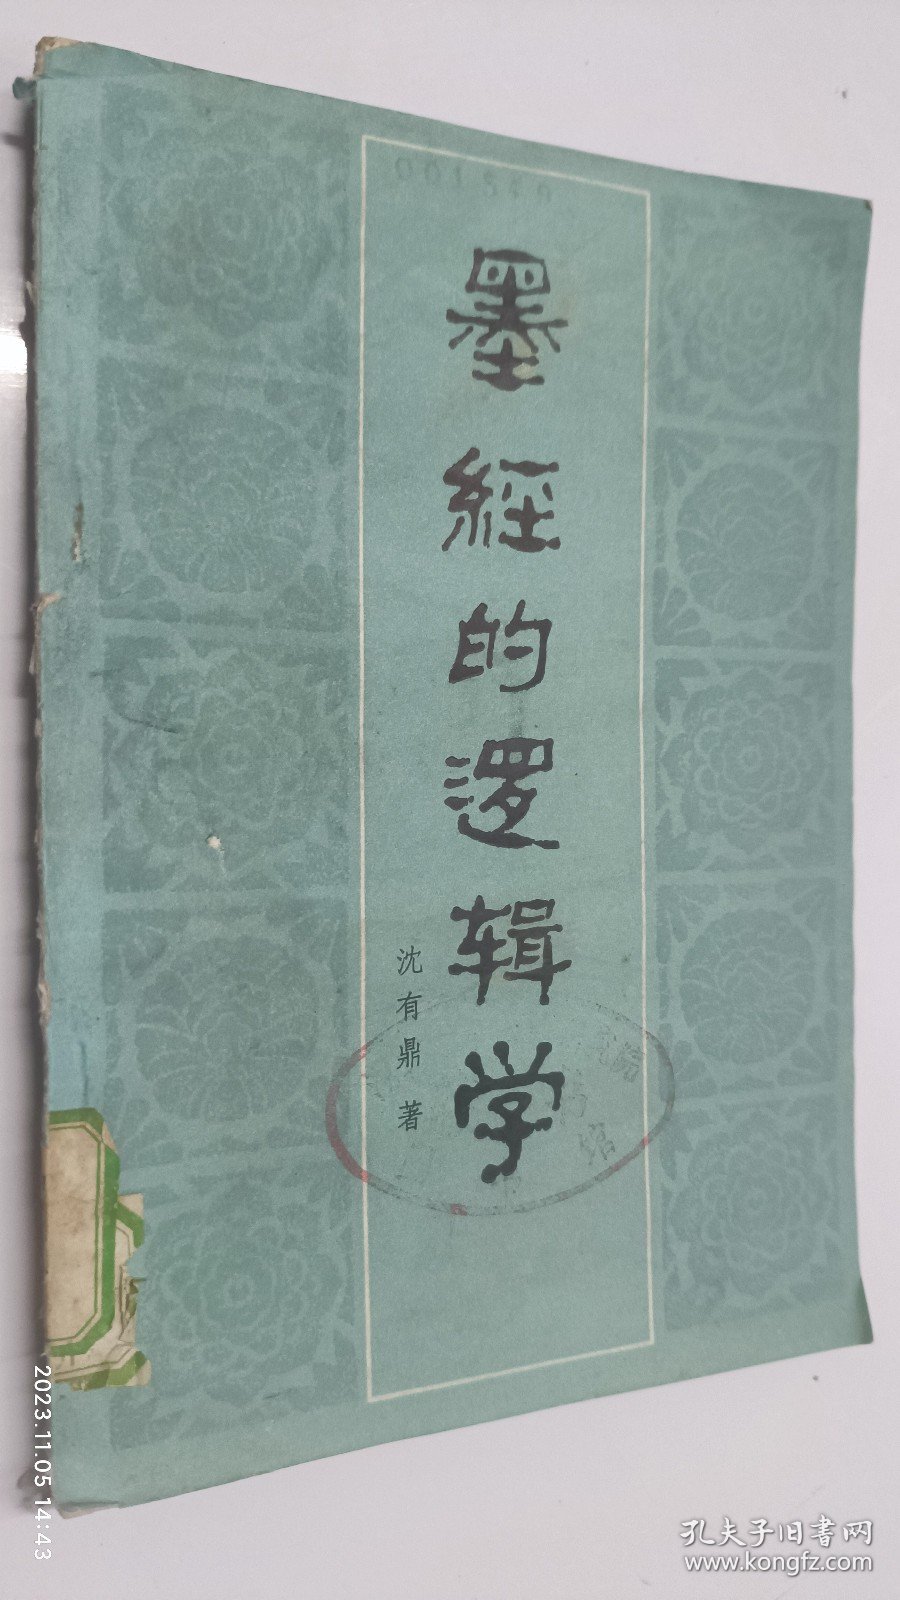 001540
墨經的逻辑学
沈有鼎 著
2023.11.05 14:43
孔夫子旧書网
www.kongfz.com